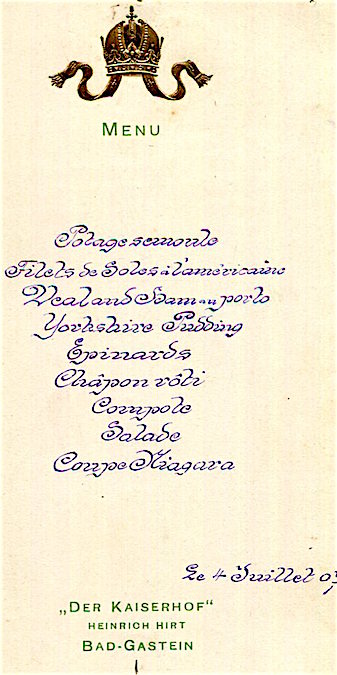 MENU
Potage semoule
Filets de Soles à l'américaine
Veal and Ham au porto
Yorkshire Pudding
Epinards
Châpon rôti
Compote
Salade
Coupe Niagara
Le 4 Juillet
„DER KAISERHOF“
HEINRICH HIRT
BAD-GASTEIN